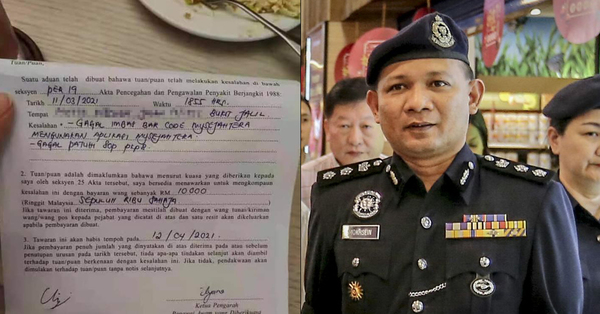 Tuan/Puan,
Suatu aduan telah dibuat bahawa tuan/puan telah melakukan kesalahan di bawah
seksyen PER 19 Akta Pencegahan dan Pengawalan Penyakit Berjangkit 1988.
Tarikh 11/03/2021 Waktu 1855 HRS.
Tempat BUKIT JALIL
Kesalahan - GAGAL IMBAS BAR CODE MYSEJAHTERA
MENGGUNAKAN APLIKASI MYSEJAHTERA
- GAGAL PATUHI SOP PKPB.
2. Tuan/puan adalah dimaklumkan bahawa menurut kuasa yang diberikan kepada
saya oleh seksyen 25 Akta tersebut, saya bersedia menawarkan untuk mengkompaun
kesalahan ini dengan bayaran wang sebanyak RM 10000
(Ringgit Malaysia SEPULUH RIBU SAHAJA
Jika tawaran ini diterima, pembayaran mestilah dibuat dengan wang tunai/kiriman
wang/wang pos kepada pejabat yang dicatat di atas dan satu resit akan dikeluarkan apabila
pembayaran dibuat.
3. Tawaran ini akan habis tempoh pada 12/04/2021.
Jika pembayaran penuh jumlah yang dinyatakan di atas diterima pada atau sebelum
penutupan urusan pada tarikh tersebut, tiada apa-apa tindakan selanjutnya akan diambil
terhadap tuan/puan berkenaan dengan kesalahan ini. Jika tidak, pendakwaan akan
dimulakan terhadap tuan/puan tanpa notis selanjutnya.
Ketua Pengarah